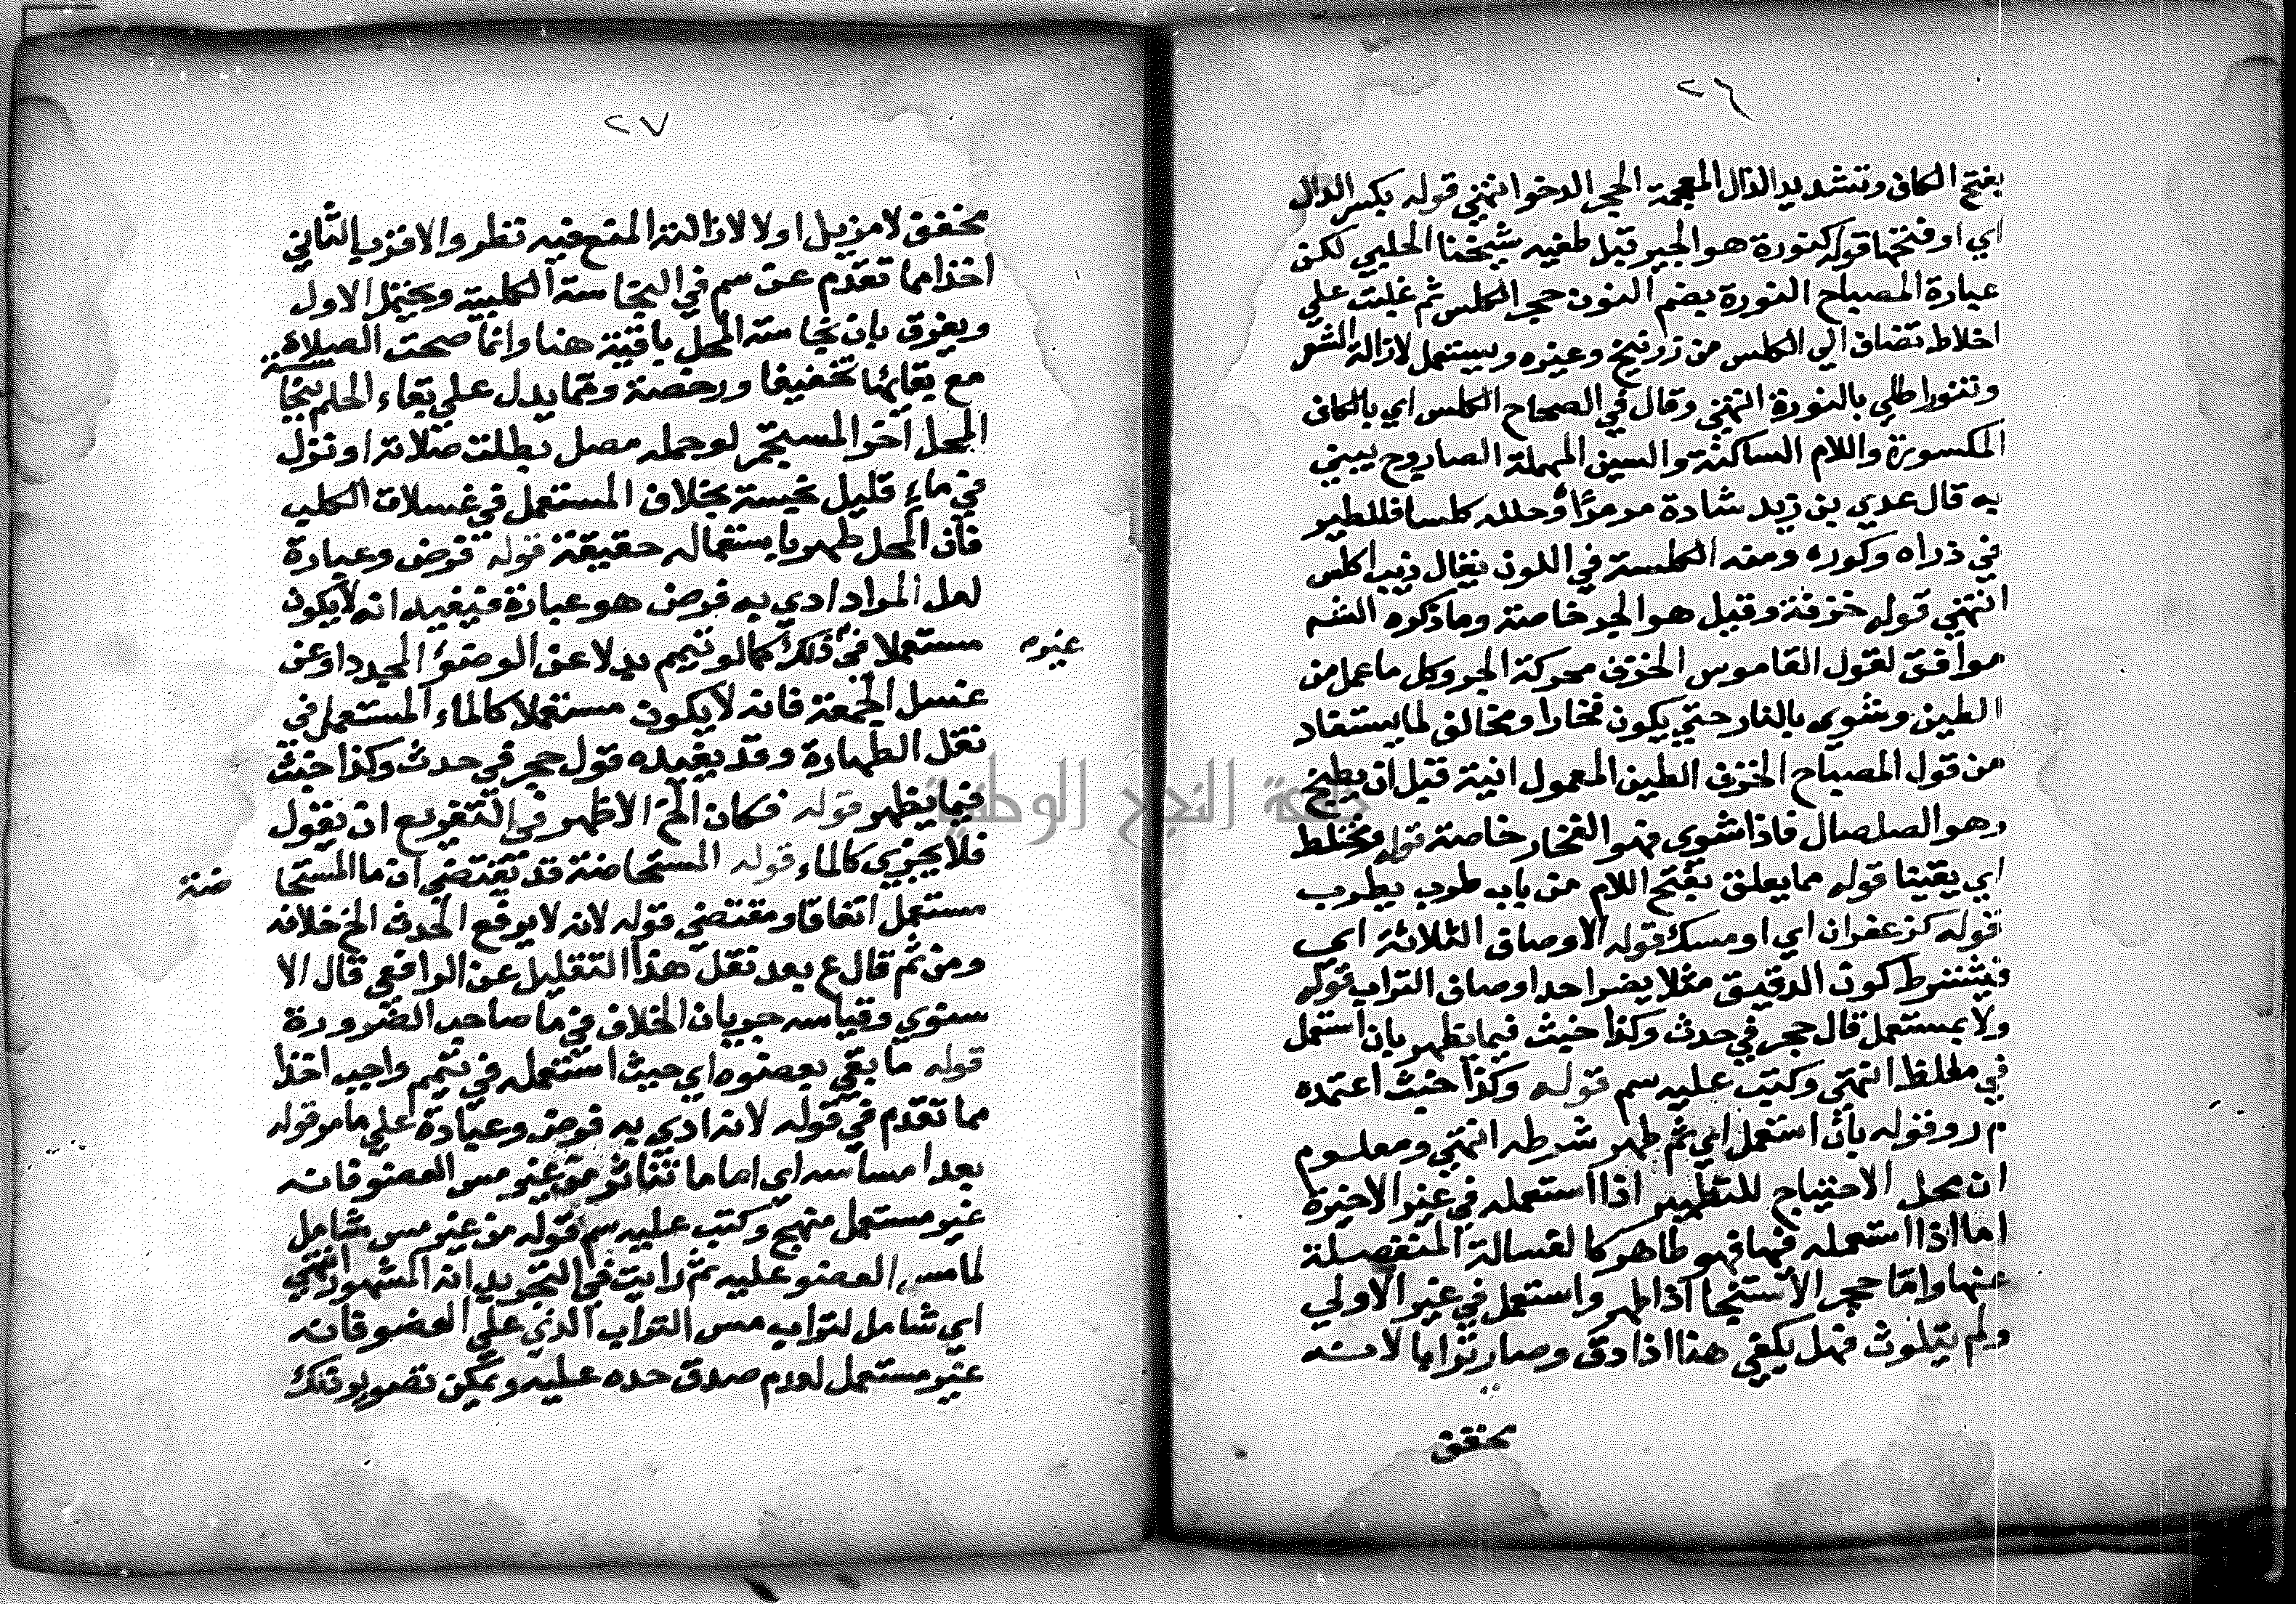 ٢٦
بفتح الكاف وتشديد الذال المعجمة الحجر الدخو انتهى قوله بكسر الدال
اي او فتحها قوله كنورة هو الجير قبل طفيه شيخنا الحلبي لكن
عبارة المصباح النورة بضم النون حجر الكلس ثم غلبت على
اخلاط تضاف الي الكلس من زرنيخ وغيره ويستعمل لازالة الشعر
وتنور اطلي بالنورة انتهى وقال في الصحاح الكلس اي بالكاف
المكسورة واللام الساكنة والسين المهملة الصاروج يبني
به قال عدي بن زيد شادة مرمرًا وحلله كلسا فللطير
في ذراه وكوره ومنه الكلسة في اللون يقال ذيب اكلس
انتهى قوله خزفة وقيل هو الجر خاصة وما ذكره الشم
موافق لقول القاموس الخزف محركة الجر وكل ما عمل من
الطين وشوي بالنار حتي يكون فخارا ومخالف لما يستفاد
من قول المصباح الخزف الطين المعمول انية قبل ان يطبخ
وهو الصلصال فاذا شوي فهو الفخار خاصة قوله مختلط
اي يقينا قوله مما يعلق بفتح اللام من باب طرب يطرب
قوله كزعفران اي او مسك قوله الاوصاف الثلاثة اي
فيشترط كون الدقيق مثلا يضر احد اوصاف التراب قوله
ولا بمستعمل قال حجر في حدث وكذا خبث فيما يظهر بان استعمل
في مغلظ انتهى وكتب عليه سم قوله وكذا خبث اعتمده
م ر وقوله بان استعمل اي ثم طهر شرطه انتهى ومعلوم
ان محل الاحتياج للتطهير اذا استعمله في غير الاخيرة
اما اذا استعمله فيها فهو طاهر كالغسالة المنفصلة
عنها واما حجر الاستنجا اذا طهر واستعمل في غير الاولي
ولم يتلوث فهل يكفي هذا اذا دق وصار ترابا لانه
مخفف
٢٧
مخفف لا مزيل او لا لازالته المنع فيه نظر والاقرب الثاني
اخذا مما تقدم عن سم في النجاسة الكلبية ويحتمل الاول
ويفرق بان نجاسة المحل باقية هنا وانما صحت الصلاة
مع بقائها تخفيفا ورخصة ومما يدل علي بقاء الحكم بنجاسة
المحل آخر المستجمر لو حمله مصل بطلت صلاته او نزل
في ماء قليل نجسه بخلاف المستعمل في غسلات الكلب
فان المحل طهر باستعماله حقيقة قوله فرض وعبارة
لعل المراد ادي به فرض هو عبادة فيفيد انه لا يكون
مستعملا في ذلك كما لو تيمم بدلا عن الوضوء المجدد او عن
غيره
غسل الجمعة فانه لا يكون مستعملا كالماء المستعمل في
نفل الطهارة وقد يفيده قول حجر في حدث وكذا خبث
فيما يظهر قوله فكان الخ الاظهر في التفريع ان يقول
فلا يجزي كالماء قوله المستحاضة قد تقتضي ان ما المستحا
ضة
مستعمل اتفاقا ومقتضي قوله لانه لا يرفع الحدث الخ خلافه
ومن ثم قال ع بعد نقل هذا التعليل عن الرافعي قال الا
سنوي وقياسه جريان الخلاف في ما صاحب الضرورة
قوله ما بقي بعضوه اي حيث استعمله في تيمم واجب اخذا
مما تقدم في قوله لانه ادي به فرض وعبادة علي ما مر قوله
بعد امساسه اي اما ما تناثر من غير مس العضو فانه
غير مستعمل منهج وكتب عليه سم قوله من غير مس شامل
لما مس العضو عليه ثم رايت في التجريد انه المشهور انتهى
اي شامل لتراب مس التراب الذي علي العضو فانه
غير مستعمل لعدم صدق حده عليه ويمكن تصوير ذلك